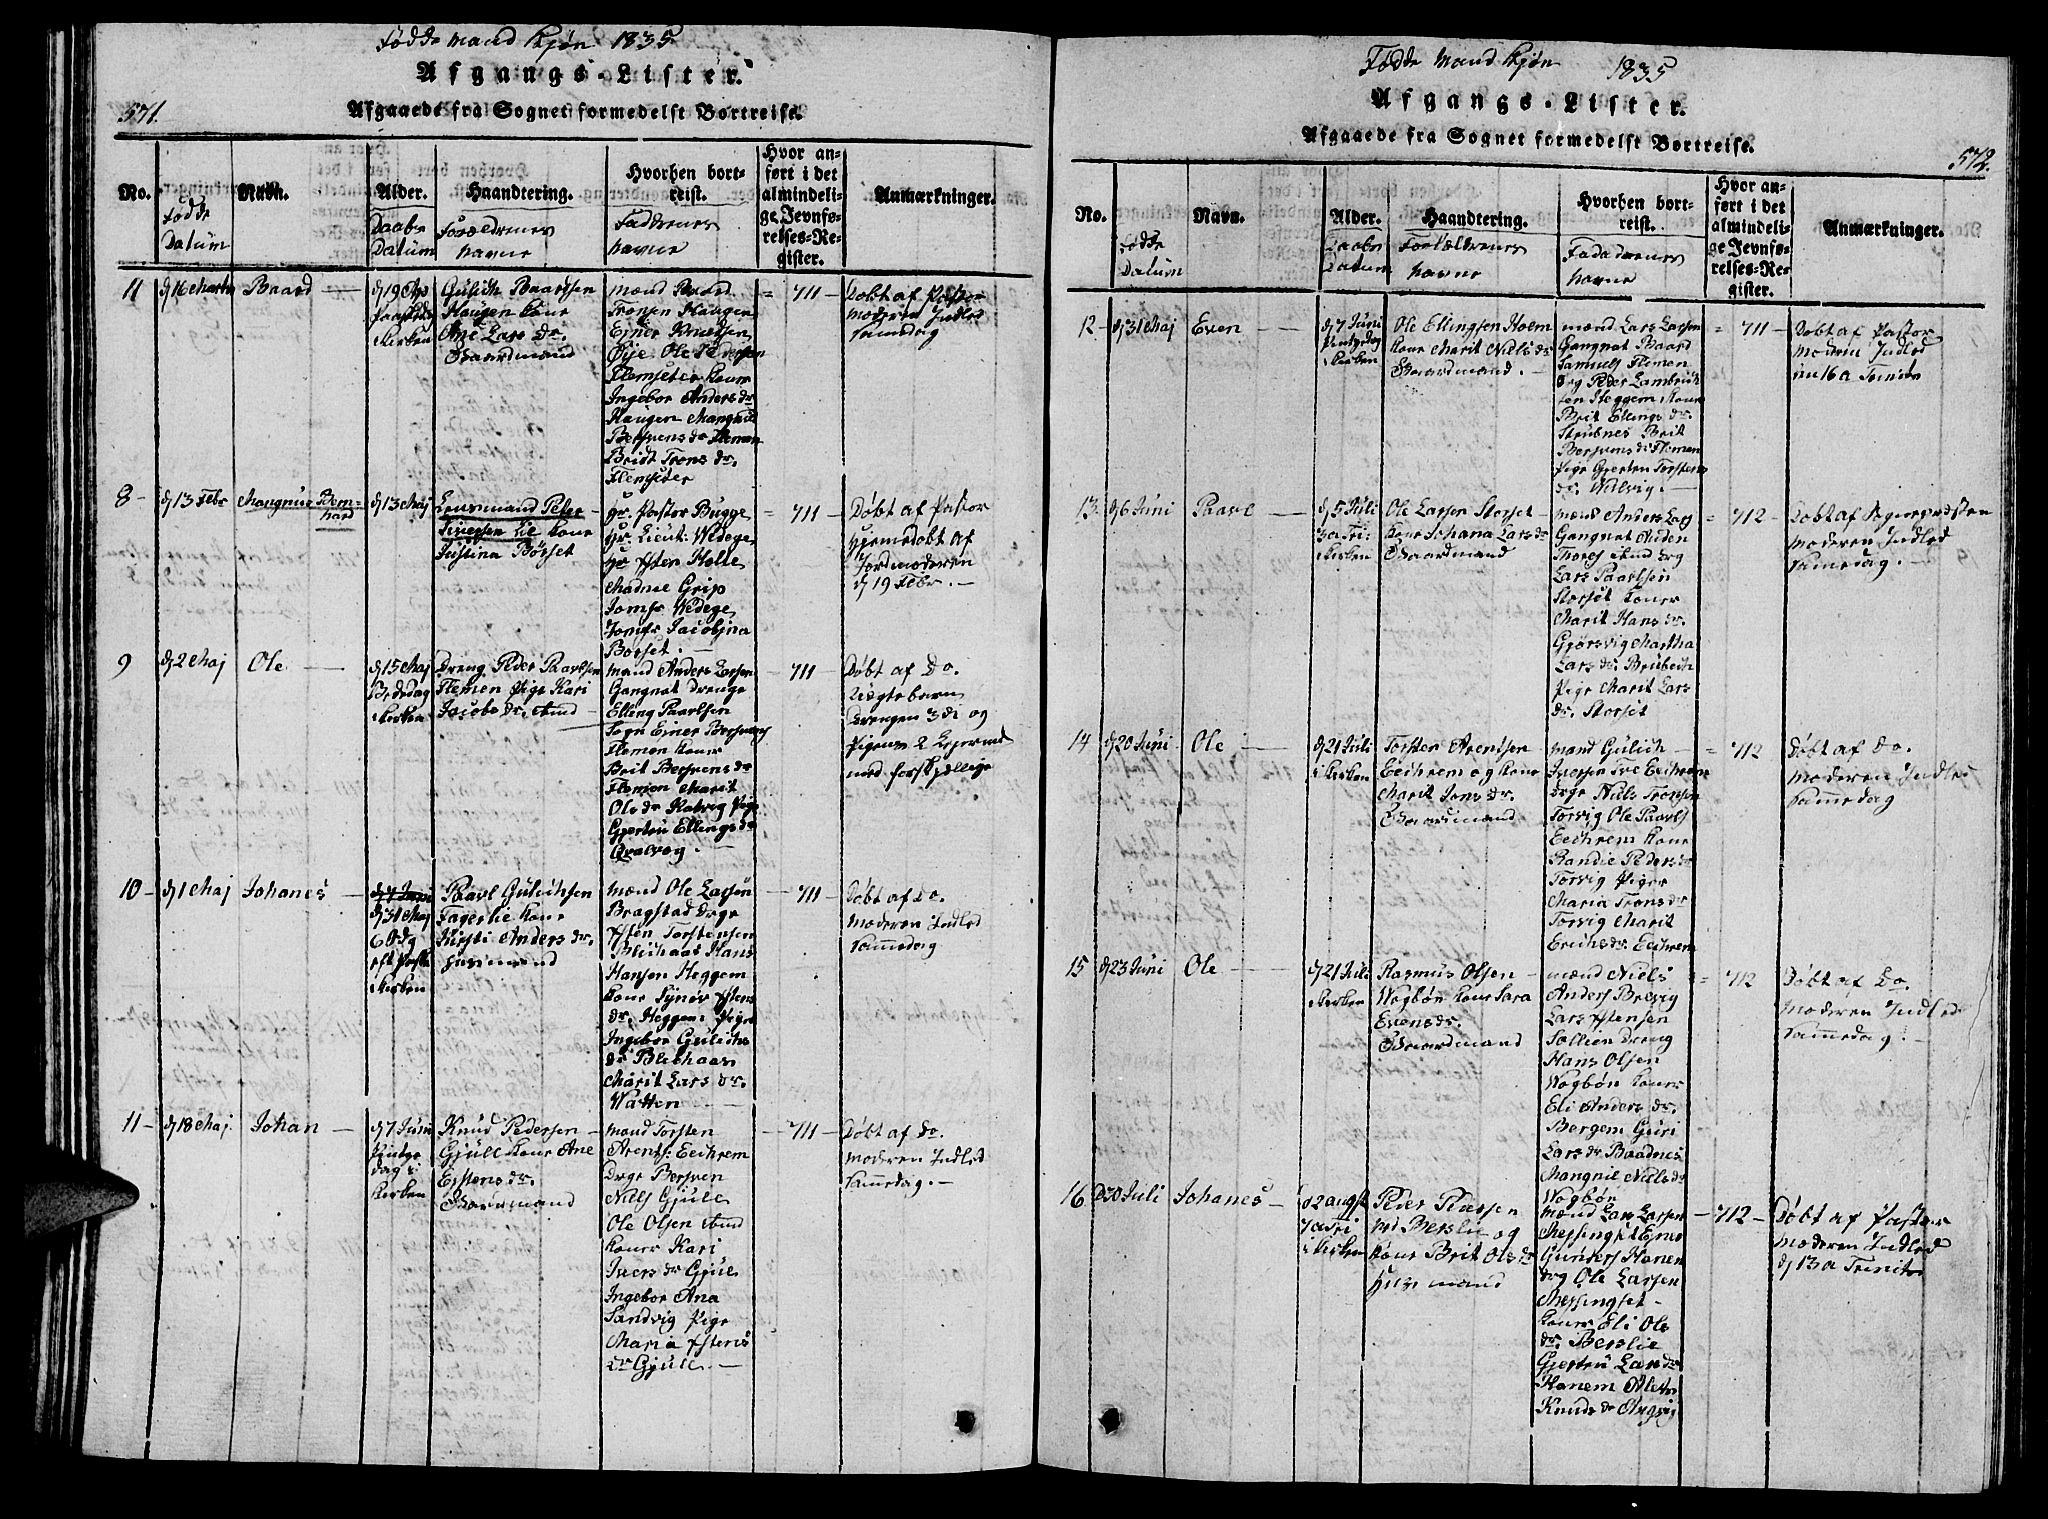 Fødde Mand Kjøn 1835
Afgangs-Lister.
571.
Afgaaede fra Sognet formedelst Bortreise.
No.
Fødde Datum
Navn.
Alder.
Daabs Datum
Haandtering.
Forældrenes Navne
Hvorhen bortreist.
Faddernes Navne
Hvor anført i det almindelige Jevnførelses-Register.
Anmærkninger.
11
d 16 Marts
Baard
Gulich Baardsen
Haugen Kone
Ane Lars Dr.
Gaardmand
Mænd Baard
Tronsen Haugen
Ejner Knudsen
Øije Ole Pedersen
Flemseter Koner
Ingebor Anders dr
Haugen Mangnild
Bersvens dr Flemen
Bridt Trons dr.
Flemseter
= 711 -
Døbt af Pastor
Moderen Indled
samedag
8 -
d 13 Febr
Mangnus Bernhard
d 13 Maj
Lensmand Peter
Siversen Lie Kone
Justina Børset
Hr. Pastor Bugge
Hr. Lieut: Wedege
Hr Østen Holte
Madme Grip
Jomfr Wedege
Jomfr Jacobina
Børset. -
= 711 -
Døbt af Pastor
Hjemedøbt af
Jordmoderen
d 19 Febr. -
9
d 2 Maj
Ole
d 15 Maj
Bededag
i Kirken
Dreng Peder Paavlsen
Flemen Pige Kari
Jacobs Dr. Aund
Mand Anders Larsen
Gangnat Drenge
Elling Paavlsen
Sogn Ejner Bersvens
Flemen Koner
Brit Bersvens dr
Flemen Marit
Ols dr Kalvig Pige
Gjertru Ellings dr
Qvalvog. -
- 711 -
Døbt af Do.
Uægtebarn
Drengen 3di og
Pigens 2 Lejermaal
med forskjællige
10 -
d 1 Maj
Johanes
d 7 Juni
d 31 Maj
6 Sdg
eft Paske
i Kirken
Paavl Gulichsen
Fagerlie Kone
Kirsti Anders dr.
Husmand
Mænd Ole Larsen
Bragstad Drge
Østen Torstensen
Blichaas Hans
Hansen Heggem
Kone Synøv Østens
dr. Heggem: Pige
Ingebor Gulichs
dr Blichaas
Marit Lars dr.
Watten
- 711 -
Døbt af Do.
Moderen Indled
samedag
11 -
d 18 Maj
Johan
d 7 Juni
Pintse
dag i
Kirken
Knud Pedersen
Gjull Kone Ane
Estens dr.
Gaardmand
Mand Torsten
Arents: Eichrem
Drge Bersven
Nils Gjule
Ole Olsen Aund
Koner Kari
Ivers dr Gjule
Ingebor Ana
Sandvig Pige
Maria Østens
dr Gjule. -
- 711 -
Døbt af Do.
Moderen Indled
samedag. -
Fødde Mand Kjøn 1835
Afgangs-Lister.
Afgaaede fra Sognet formedelst Bortreise.
572.
No.
Fødde Datum
Navn.
Alder.
Daabs Datum
Haandtering.
Forældrenes Navne
Hvorhen bortreist.
Faddernes Navne
Hvor anført i det almindelige Jevnførelses-Register.
Anmærkninger.
12 -
d 31 Maj
Even
d 7 Juni
i Kirken
Ole Ellingsen Holm
Kone Marit Niels dr
Gaardmand. -
Mænd Lars Larsen
Gangnat Baard
Samuels Flemen
Drg Peder Lambricht
sen Heggem Koner
Brit Ellings dr.
Strubnes Brit
Bersvens dr Flemen
Pige Gjertru Torstens
dr. Walvig. -
= 711 -
Døbt af Pastor
Moderen Indled
16 a Trinit
13 -
d 6 Juni
Paavl
d 5 Juli
3 a Tri
i Kirken
Ole Larsen Storset
Kone Johana Lars dr
Gaardmand
Mænd Anders Lars
Gangnat Auden
Thores Aund Drg
Lars Paavlsen
Storset Koner
Marit Hans dr.
Gjørsvig Martha
Lars dr. Brubech
Pige Marit Lars
dr. Storset
= 712 -
Døbt af Sognepræsten
Moderen Indled
samedag. -
14
d 20 Juni
Ole
d 21 Juli
i Kirken
Torsten Arentsen
Eichrem og Kone
Marit Jens dr.
Gaardmand
Mænd Gulich
Iversen Eichrem
Drge Niels Tronsen
Torvig Ole Paavls
Eichrem Kone
Randie Peders dr
Torvig Piger
Maria Trons dr
Torvig Marit
Erichs dr. Eichrem
= 712
Døbt af Do.
Moderen Indled
samedag
15
d 23 Juni
Ole
d 21 Juli
i Kirken
Rasmus Olsen
Wogbøn Kone Sara
Evens dr.
Gaardmand
Mænd Niels
Anders Brevig
Lars Østensen
Sollien Dreng
Hans Olsen
Wogbøn Koner
Eli Anders dr.
Bergem Guri
Lars dr Baadnes
Mangnil Niels dr
Wogbøn
= 712
Døbt af Do.
Moderen Indled
samedag. -
16
d 30 Juli
Johanes
d 2 Augst
7 a Tri
i Kirken
Peder Pedersen
Berslie og
Kone Brit Ols dr
Husmand
Mænd Lars Larsen
Messingset Ejner
Gunders Hanem
Drg Ole Larsen
Messingset -
Koner Eli Ols
dr. Berslie
Gjertru Lars dr
Hanem Alet
Knuds dr Angvig
- 712 -
Døbt af Pastor
Moderen Indled
d 13 a Trinit